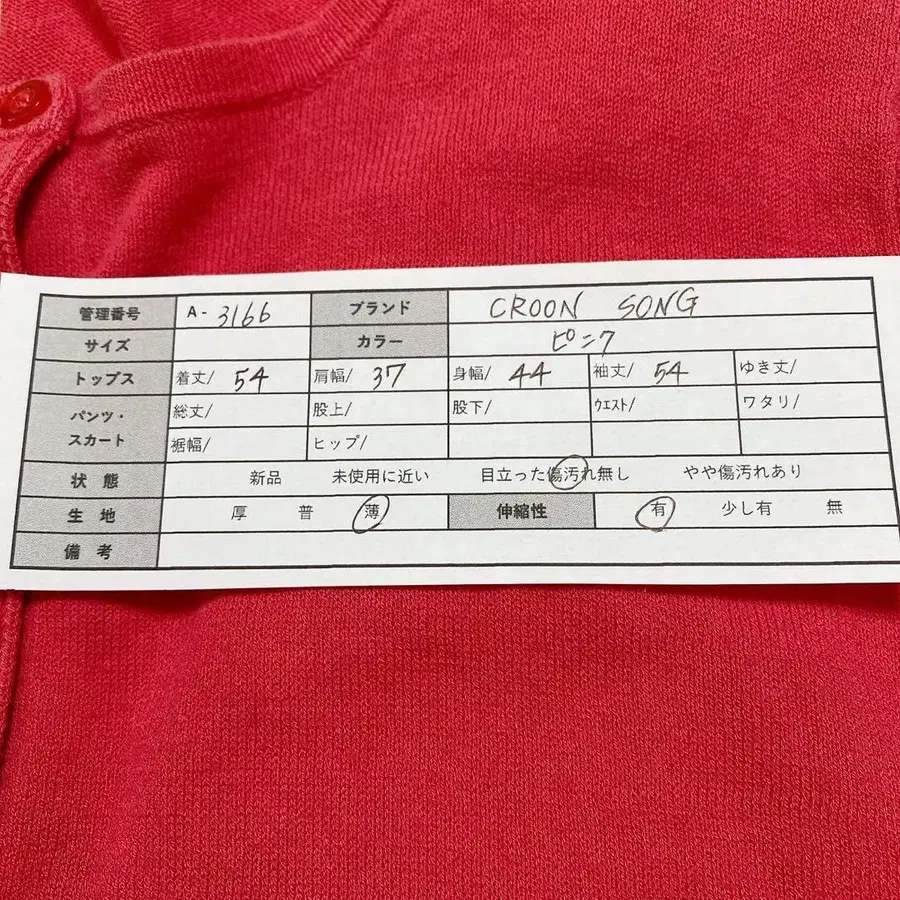 管理番号 A- 3166 ブランド CROON SONG
サイズ カラー ピンク
トップス 着丈/ 54 肩幅/ 37 身幅/ 44 袖丈/ 54 ゆき丈/
パンツ・スカート 総丈/ 股上/ 股下/ ウエスト/ ワタリ/
裾幅/ ヒップ/
状態 新品 未使用に近い 目立った傷汚れ無し やや傷汚れあり
生地 厚 普 薄 伸縮性 有 少し有 無
備考